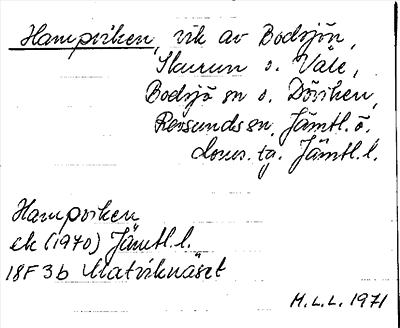 Hampviken, vik av Bodsjön,
Skurun o. Våle,
Bodsjö sn o. Döviken,
Revsunds sn, Jämtl. ö.
doms. tg. Jämtl. l.
Hampviken
ek (1970) Jämtl. l.
18F 3b Matviknäset
M.L.L. 1971